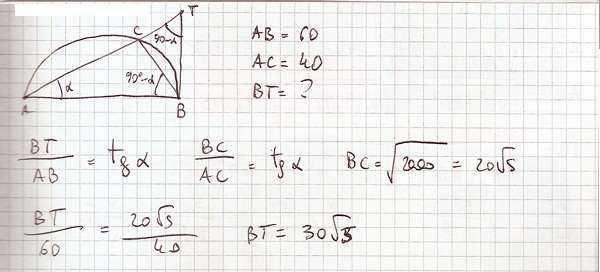 T
C
90-α
α
90°-α
A
B
AB = 60
AC = 40
BT = ?
BT/AB = tg α BC/AC = tg α BC = √2000 = 20√5
BT/60 = 20√5/40 BT = 30√5